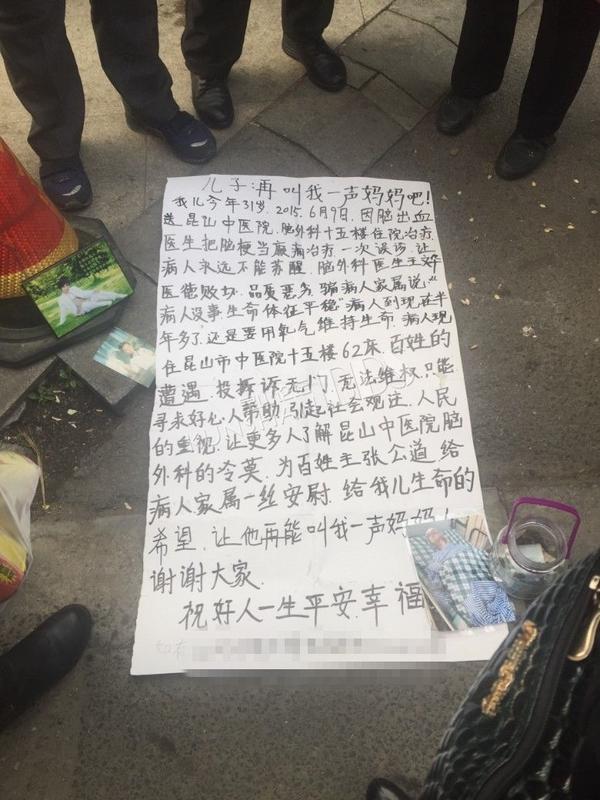 儿子:再叫我一声妈妈吧!
我儿今年31岁.2015.6月9日.因脑出血
送昆山中医院.脑外科十五楼住院治疗.
医生把脑梗当癫痫治疗.一次误诊.让
病人永远不能苏醒.脑外科医生王文华
医德败坏.品质恶劣.骗病人家属说"
病人没事生命体征平稳"病人到现在半
年多了.还是要用氧气维持生命.病人现
住昆山市中医院十五楼62床.百姓的
遭遇.投拆诉无门.无法维权.只能
寻求好心人帮助.引起社会观注.人民
的重视.让更多人了解昆山中医院脑
外科的冷莫.为百姓主张公道.给
病人家属一丝安尉.给我儿生命的
希望.让他再能叫我一声妈妈!
谢谢大家.
祝好人一生平安.幸福
如有